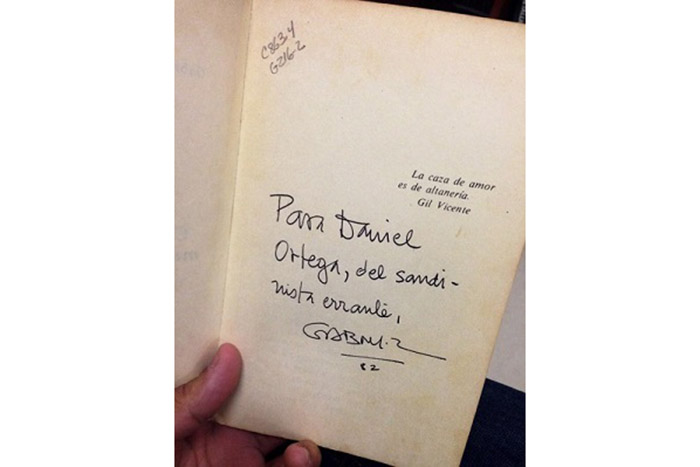 C863.4
G216-2
La caza de amor
es de altanería.
Gil Vicente
Para Daniel
Ortega, del sandi-
nista errante,
82